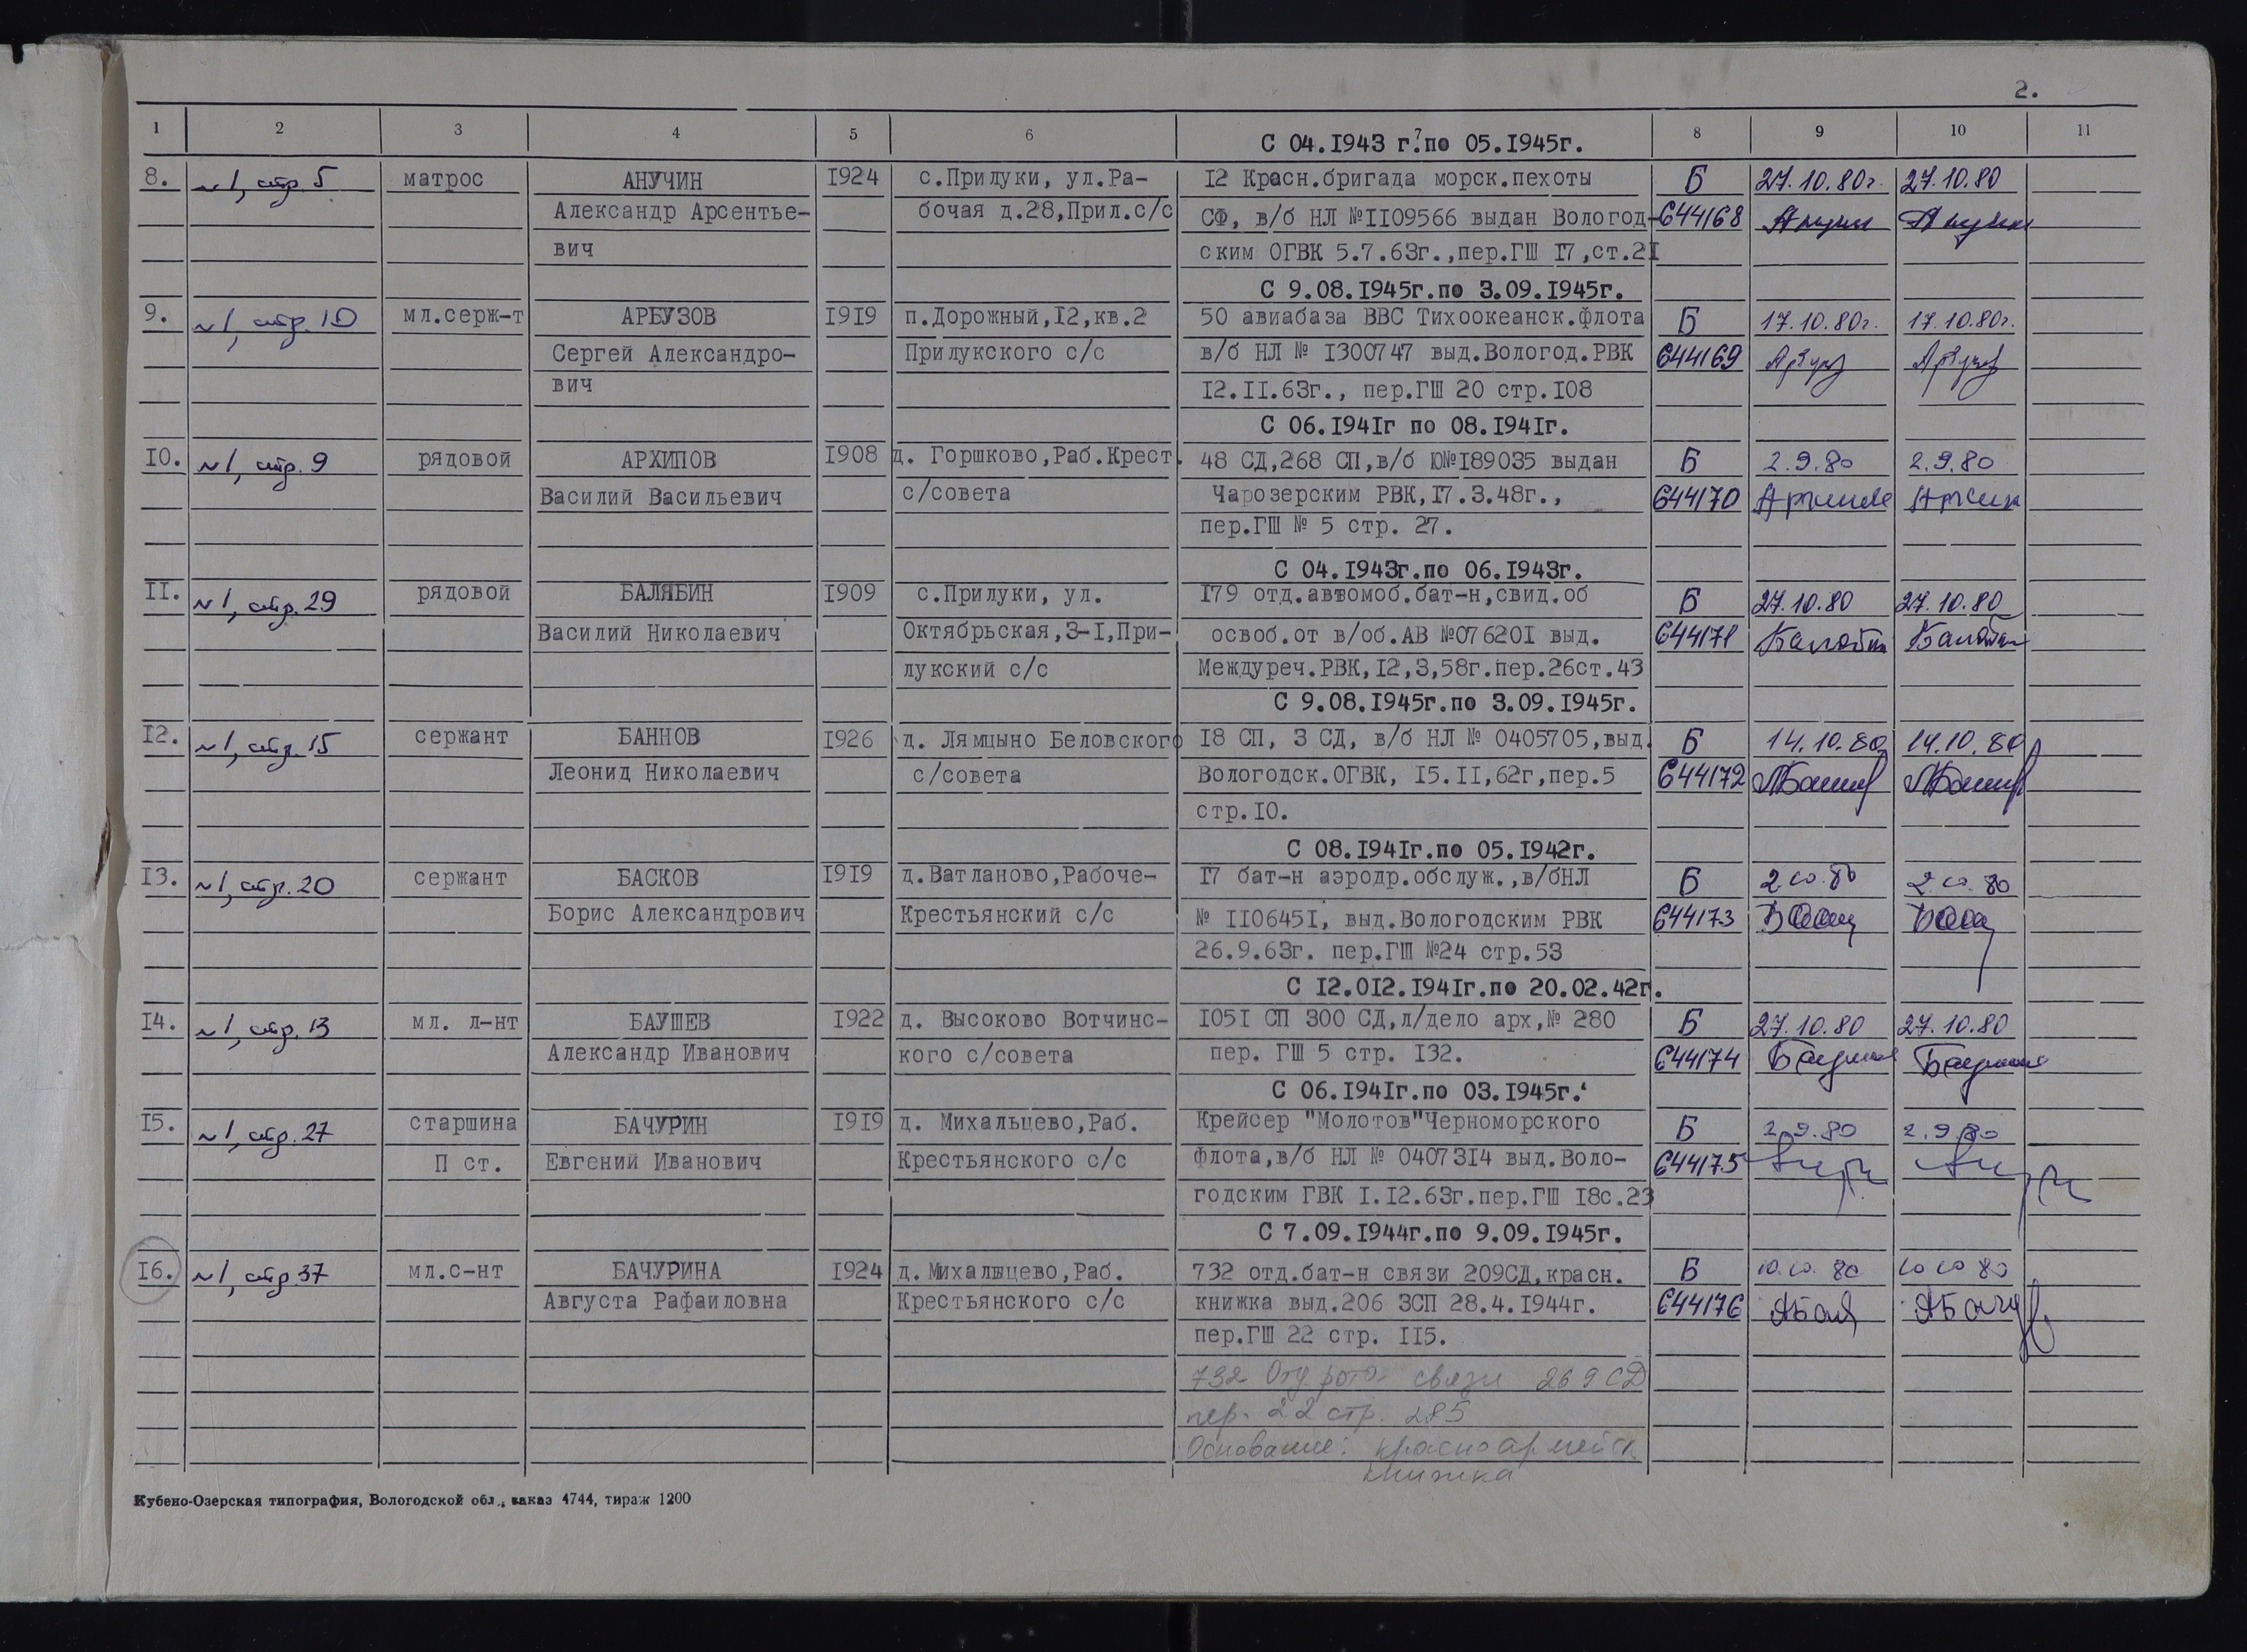 2.
1 2 3 4 5 6 7 8 9 10 11
С 04.1943 г. по 05.1945г.
8. №1, стр. 5 матрос АНУЧИН 1924 с.Прилуки, ул.Ра- 12 Красн.бригада морск.пехоты Б 27.10.80г. 27.10.80
Александр Арсентье- бочая д.28,Прил.с/с СФ, в/б НЛ №1109566 выдан Вологод- 644168
вич ским ОГВК 5.7.63г.,пер.ГШ 17,ст.21
С 9.08.1945г.по 3.09.1945г.
9. №1, стр. 10 мл.серж-т АРБУЗОВ 1919 п.Дорожный,12,кв.2 50 авиабаза ВВС Тихоокеанск.флота Б 17.10.80г. 17.10.80г.
Сергей Александро- Прилукского с/с в/б НЛ № 1300747 выд.Вологод.РВК 644169
вич 12.11.63г., пер.ГШ 20 стр.108
С 06.1941г по 08.1941г.
10. №1, стр. 9 рядовой АРХИПОВ 1908 д. Горшково,Раб.Крест. 48 СД,268 СП,в/б Ю№189035 выдан Б 2.9.80 2.9.80
Василий Васильевич с/совета Чарозерским РВК,17.3.48г., 644170
пер.ГШ № 5 стр. 27.
С 04.1943г.по 06.1943г.
11. №1, стр. 29 рядовой БАЛЯБИН 1909 с.Прилуки, ул. 179 отд.автомоб.бат-н,свид.об Б 27.10.80 27.10.80
Василий Николаевич Октябрьская,3-1,При- освоб.от в/об.АВ №076201 выд. 644171
лукский с/с Междуреч.РВК,12,3,58г.пер.26ст.43
С 9.08.1945г.по 3.09.1945г.
12. №1, стр. 15 сержант БАННОВ 1926 д. Лямцыно Беловского 18 СП, 3 СД, в/б НЛ № 0405705,выд. Б 14.10.80 14.10.80
Леонид Николаевич с/совета Вологодск.ОГВК, 15.11,62г,пер.5 644172
стр.10.
С 08.1941г.по 05.1942г.
13. №1, стр. 20 сержант БАСКОВ 1919 д.Ватланово,Рабоче- 17 бат-н аэродр.обслуж.,в/бНЛ Б 2.10.80 2.10.80
Борис Александрович Крестьянский с/с № 1106451, выд.Вологодским РВК 644173
26.9.63г. пер.ГШ №24 стр.53
С 12.012.1941г.по 20.02.42г.
14. №1, стр. 13 мл. л-нт БАУШЕВ 1922 д. Высоково Вотчинс- 1051 СП 300 СД,л/дело арх,№ 280 Б 27.10.80 27.10.80
Александр Иванович кого с/совета пер. ГШ 5 стр. 132. 644174
С 06.1941г.по 03.1945г.
15. №1, стр. 27 старшина БАЧУРИН 1919 д. Михальцево,Раб. Крейсер "Молотов"Черноморского Б 2.9.80 2.9.80
П ст. Евгений Иванович Крестьянского с/с флота,в/б НЛ № 0407314 выд.Воло- 644175
годским ГВК 1.12.63г.пер.ГШ 18с.23
С 7.09.1944г.по 9.09.1945г.
16. №1, стр 37 мл.с-нт БАЧУРИНА 1924 д. Михальцево,Раб. 732 отд.бат-н связи 209СД,красн. Б 10.10.80 10 10 80
Августа Рафаиловна Крестьянского с/с книжка выд.206 ЗСП 28.4.1944г. 644176
пер.ГШ 22 стр. 115.
732 Отд рота связи 269 СД
пер. 22 стр. 285
Основание: красноармейск
книжка
Кубено-Озерская типография, Вологодской обл., заказ 4744, тираж 1200